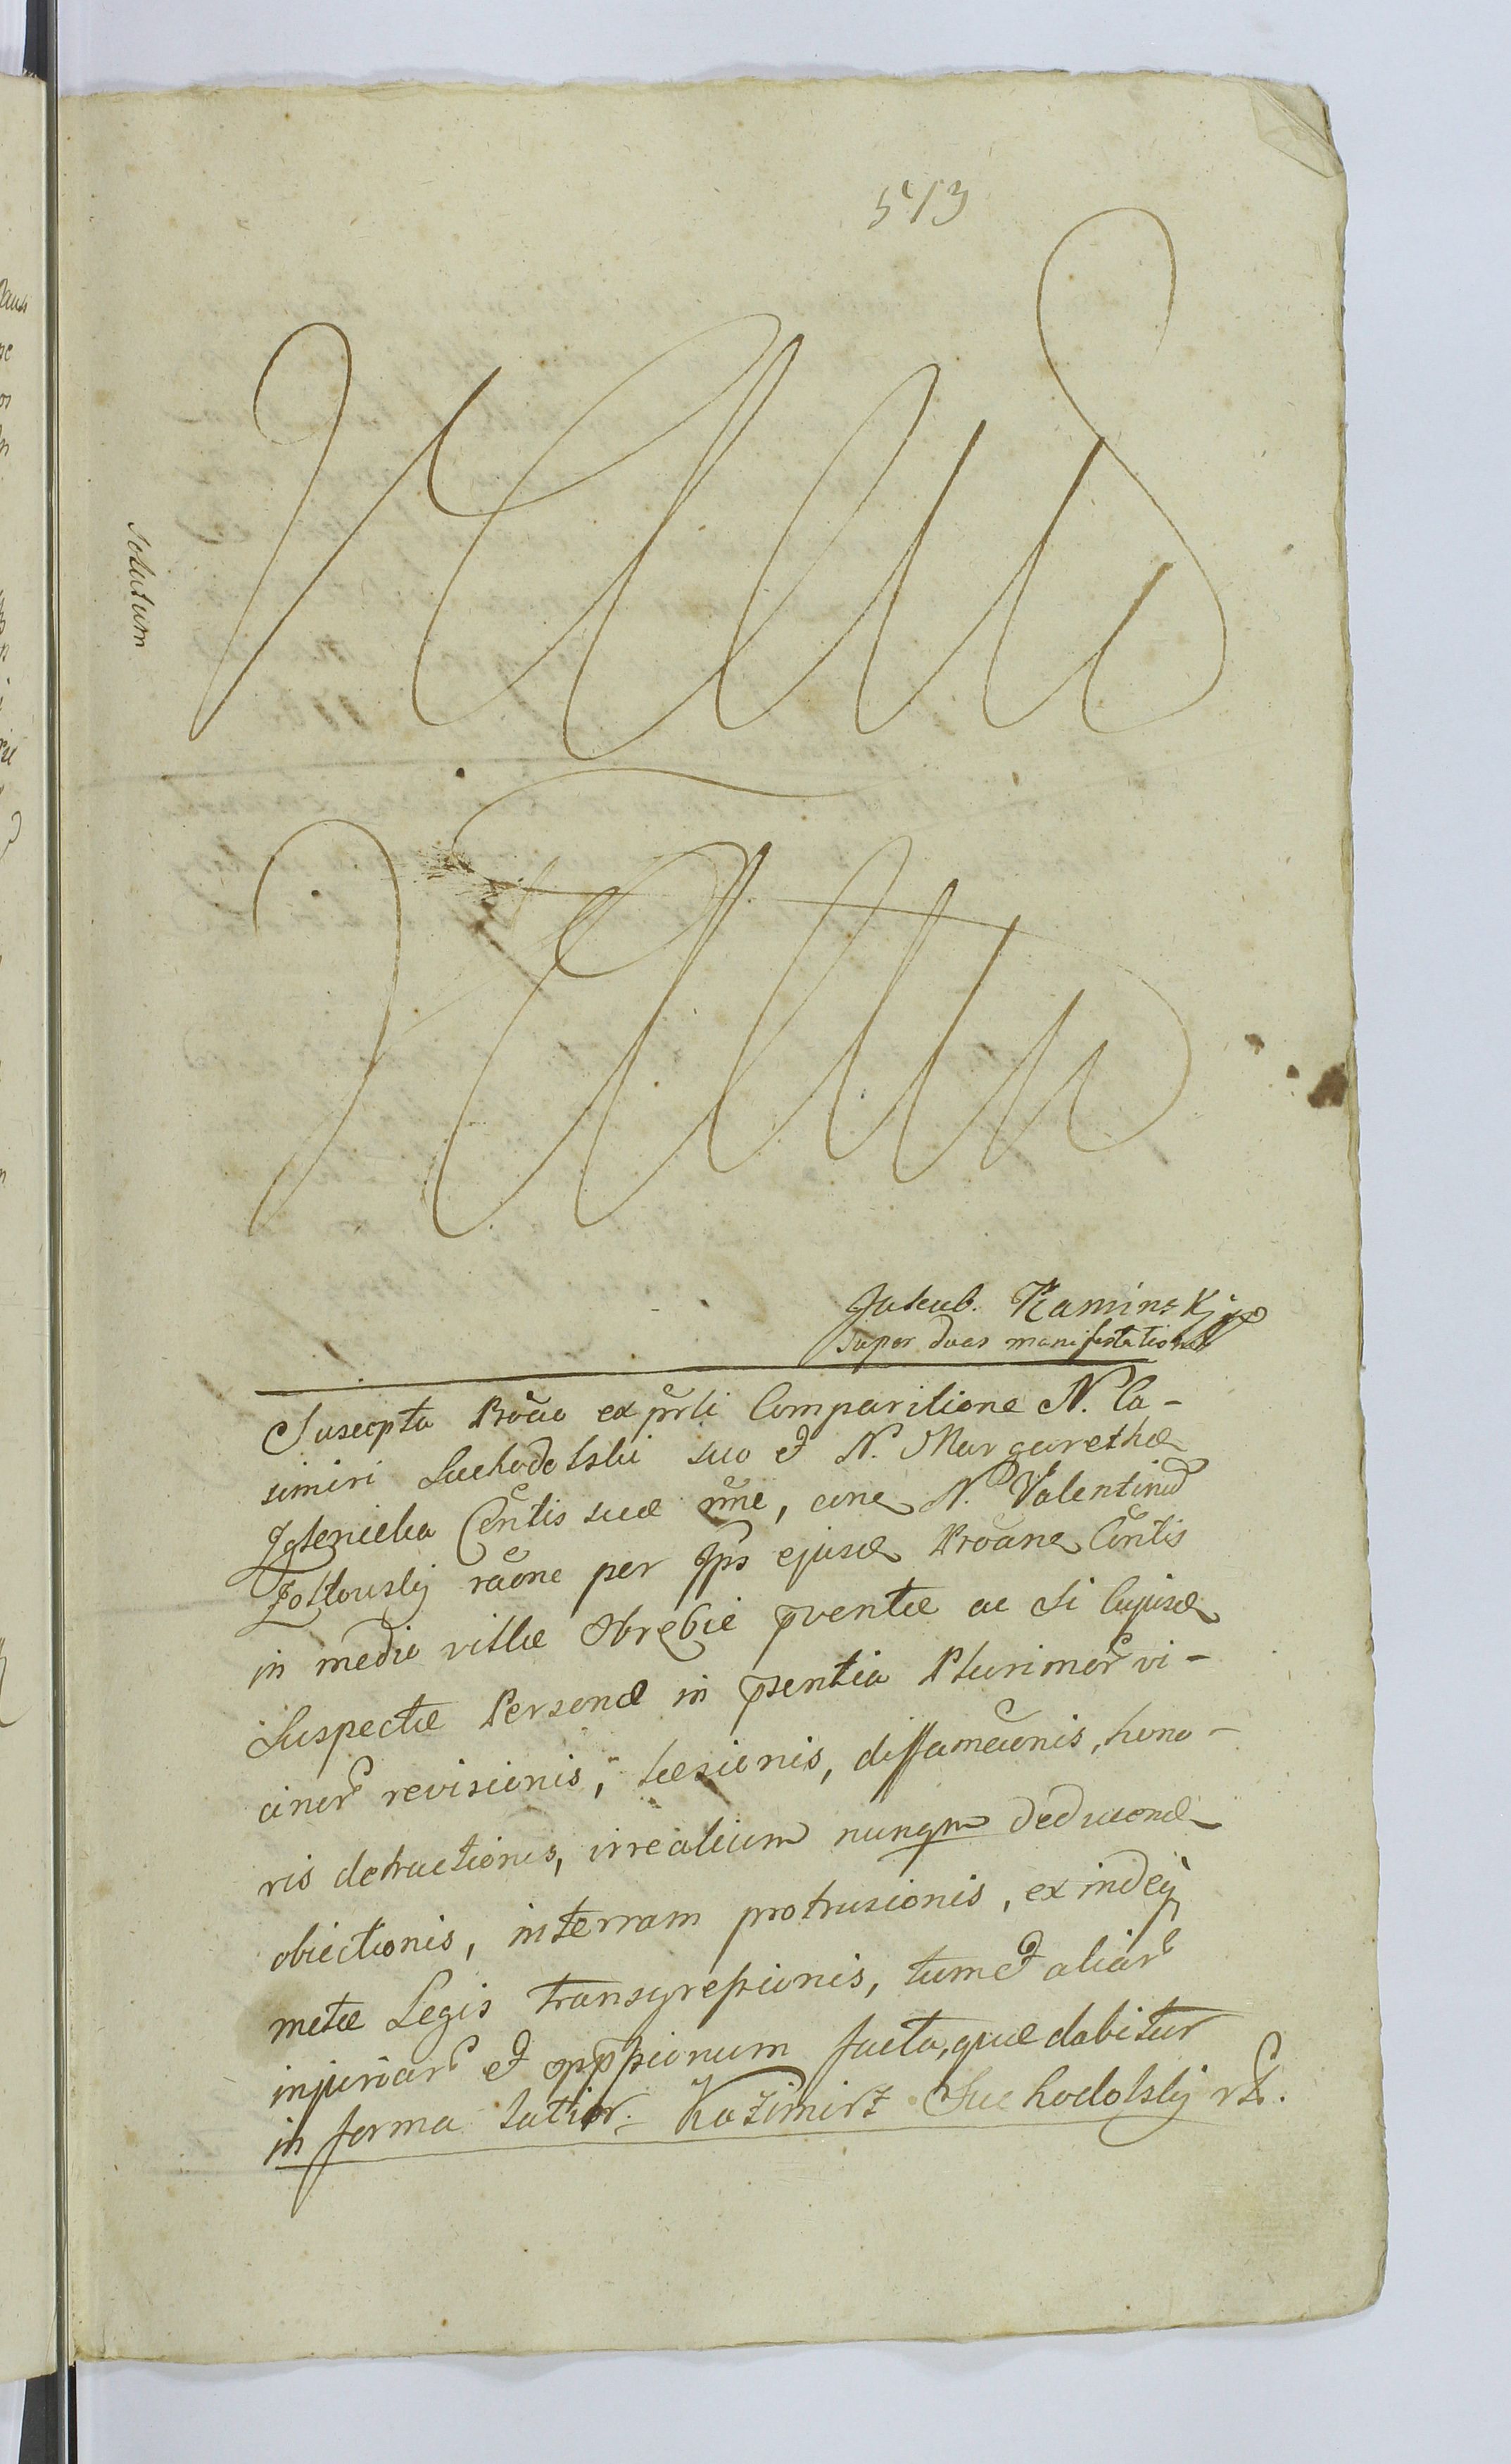 513
solutum
Jakub. Kaminskj
super duas manifestationes
Suscepta Proťťo ex pŕli Comparitione N. Ca-
simiri Suchodolski suo et N. Margarethæ
Conŕtis suæ nn̄e, cone N. Valentinũ
Zoltowskj rãone per Ip̃s ejusd
in medio villæ Obrębie p̃ventæ ac si Cujusd
Suspectæ Personæ in p̃sentia Plurimor vi-
cinor revisionis, læsionis, diffamãonis, hono-
ris detractionis, irrealium nunqm deducend
obiectionis, in terram protrusionis, ex indeq̃
metæ Legis transgressionis, tum et aliar
injuriar et opp̃ssionum facta, quæ dabitur
in forma latior. Kazimirz Suchodolskj